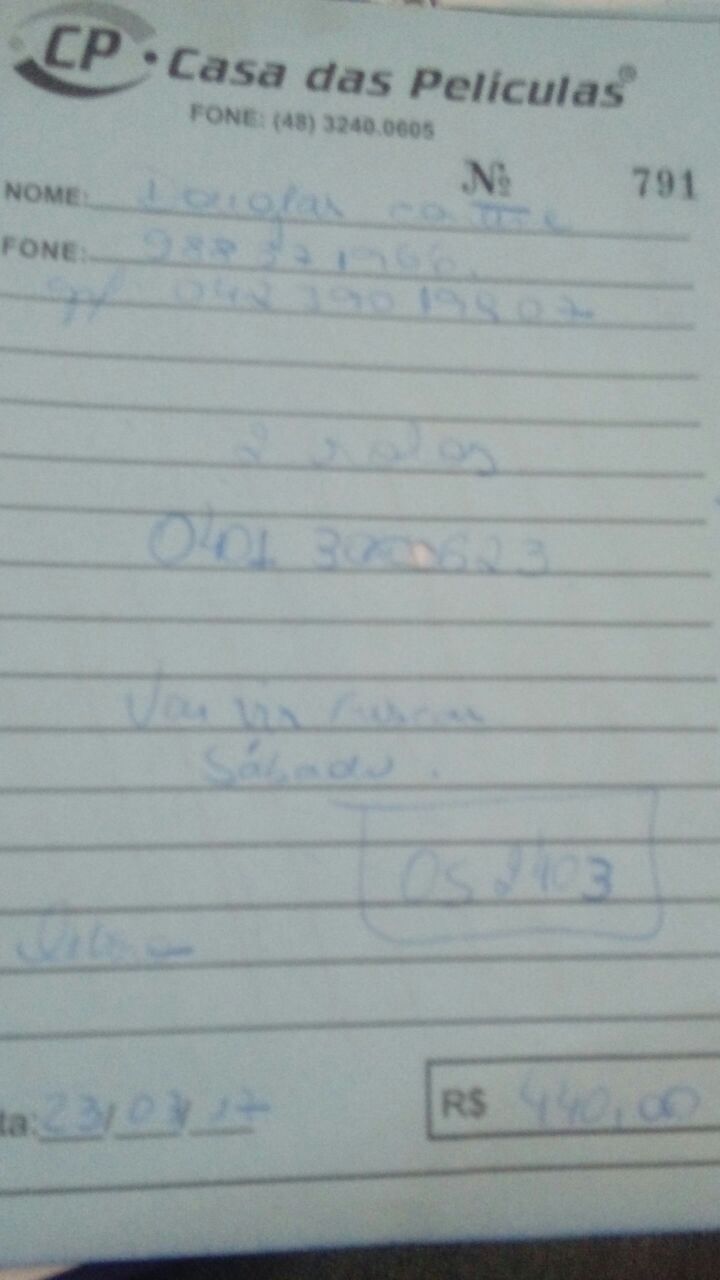 CP • Casa das Películas®
FONE: (48) 3240.0605
Nº 791
NOME: Douglas
FONE:
2 rolos
0401 3000623
Vai vir buscar
Sábado.
OS 2403
ta: 23/03/17
R$ 440,00